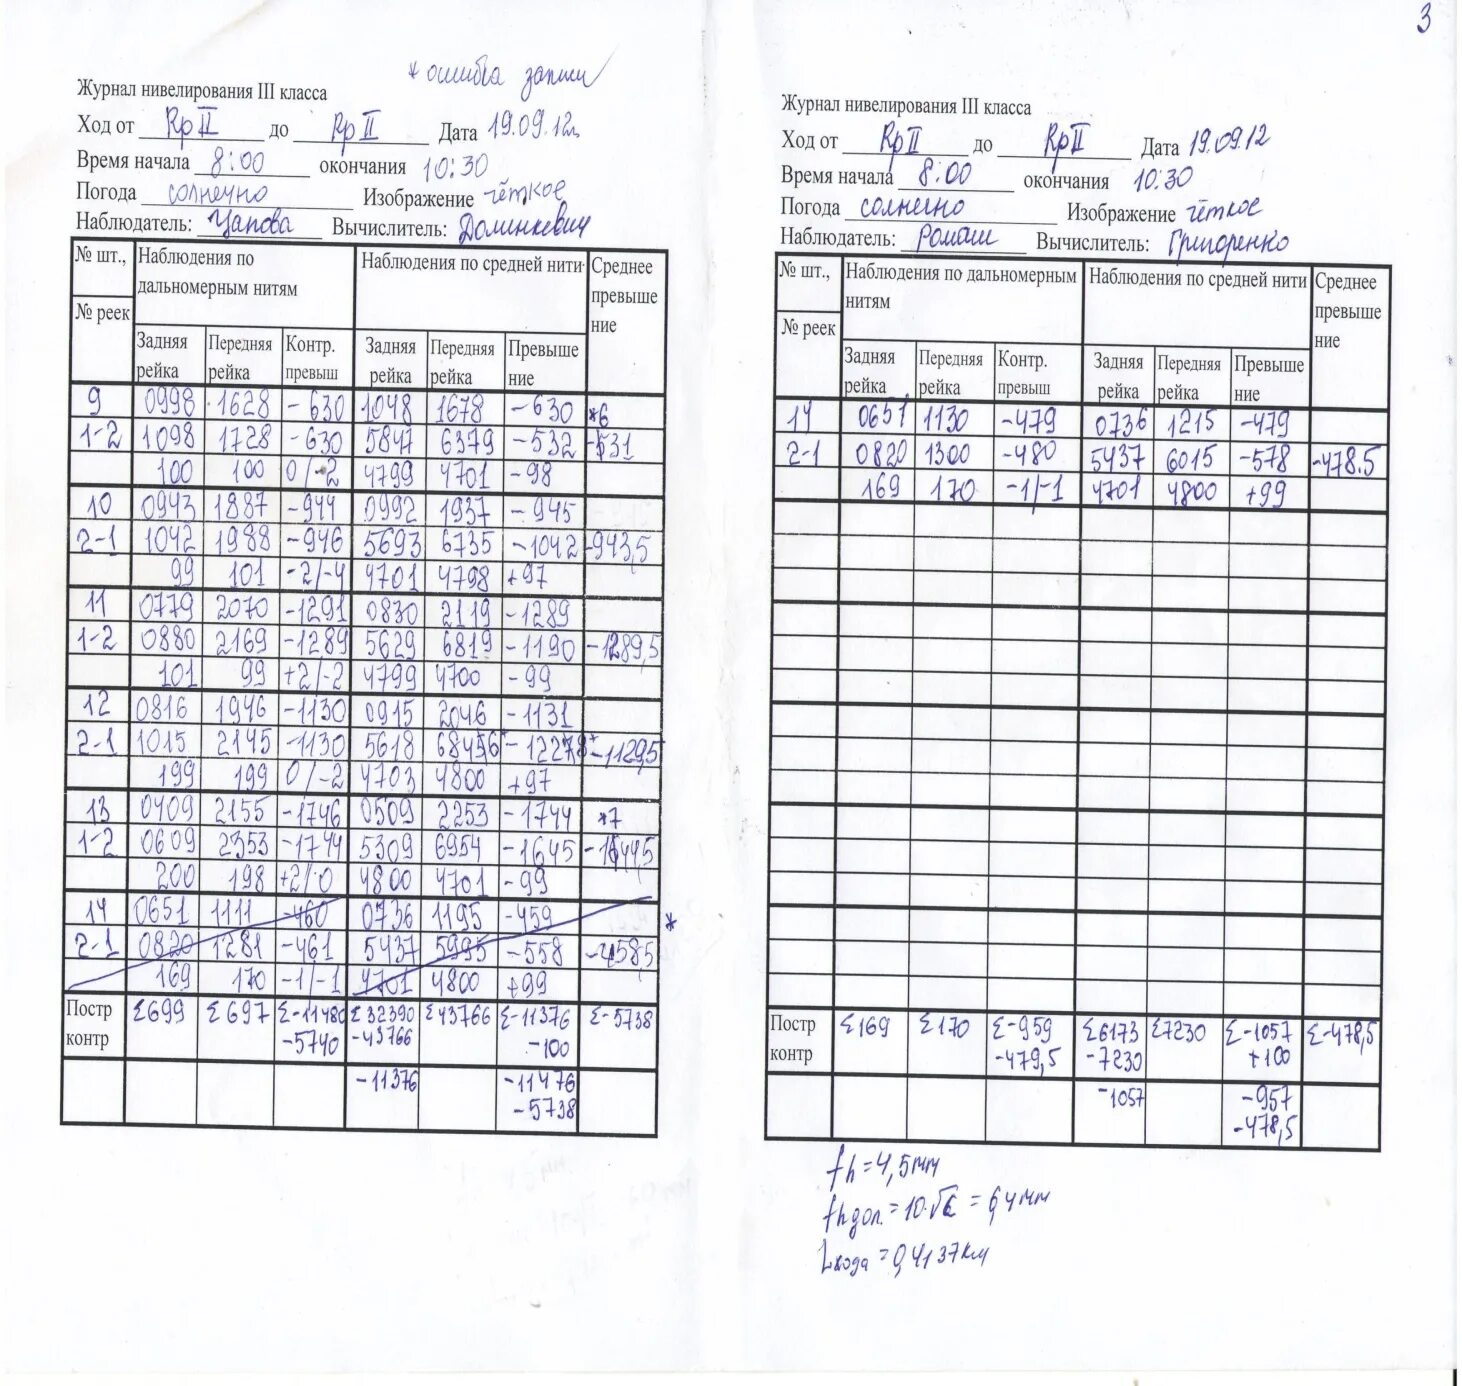 3
* ошибка записи
Журнал нивелирования III класса
Ход от Rp II до Rp II Дата 19.09.12г.
Время начала 8:00 окончания 10:30
Погода солнечно Изображение чёткое
Наблюдатель: Цапова Вычислитель: Долинкевич
№ шт., Наблюдения по дальномерным нитям Наблюдения по средней нити Среднее превыше ние
№ реек Задняя рейка Передняя рейка Контр. превыш Задняя рейка Передняя рейка Превыше ние
9 0998 1628 -630 1048 1678 -630 *6
1-2 1098 1728 -630 5847 6379 -532 -531
100 100 0/-2 4799 4701 -98
10 0943 1887 -944 0992 1937 -945
2-1 1042 1988 -946 5693 6735 -1042 -943,5
99 101 -2/-4 4701 4798 +97
11 0779 2070 -1291 0830 2119 -1289
1-2 0880 2169 -1289 5629 6819 -1190 -1289,5
101 99 +2/-2 4799 4700 -99
12 0816 1946 -1130 0915 2046 -1131
2-1 1015 2145 -1130 5618 -1129,5
199 199 0/-2 4703 4800 +97
13 0409 2155 -1746 0509 2253 -1744 *7
1-2 0609 2353 -1744 5309 6954 -1645 -1644,5
200 198 +2/0 4800 4701 -99
14 0651 1111 -460 0736 1195 -459 *
2-1 0820 1281 -461 5437 5995 -558 -458,5
169 170 -1/-1 4701 4800 +99
Постр контр Σ699 Σ697 Σ-11480 Σ32390 Σ43766 Σ-11376 Σ-5738
-5740 -43766 -100
-11376 -11476
-5738
Журнал нивелирования III класса
Ход от Rp II до Rp II Дата 19.09.12
Время начала 8:00 окончания 10:30
Погода солнечно Изображение чёткое
Наблюдатель: Ромаш Вычислитель: Григоренко
№ шт., Наблюдения по дальномерным нитям Наблюдения по средней нити Среднее превыше ние
№ реек Задняя рейка Передняя рейка Контр. превыш Задняя рейка Передняя рейка Превыше ние
14 0651 1130 -479 0736 1215 -479
2-1 0820 1300 -480 5437 6015 -578 -478.5
169 170 -1/-1 4701 4800 +99
Постр контр Σ169 Σ170 Σ-959 Σ6173 Σ7230 Σ-1057 Σ-478,5
-479,5 -7230 +100
-1057 -957
-478,5
fh = 4,5мм
fh доп. = 10·√L = 6,4мм
Lхода = 0,4137км